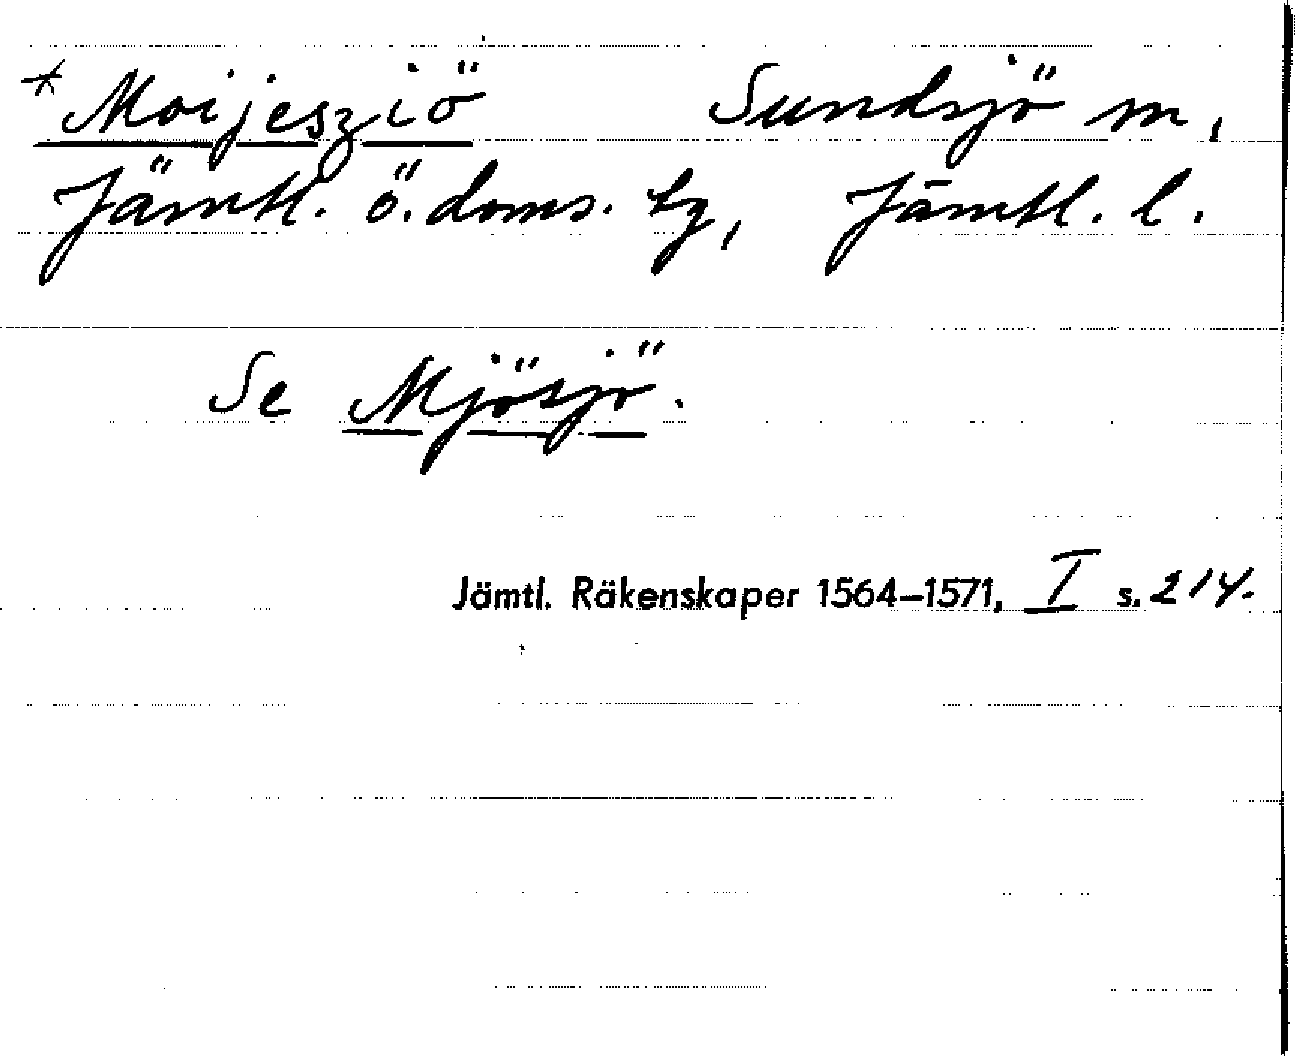 * Moijesziö Sundsjö sn,
Jämtl. ö. doms. tg, Jämtl. l.
Se Mjösjö.
Jämtl. Räkenskaper 1564–1571, I s. 214.